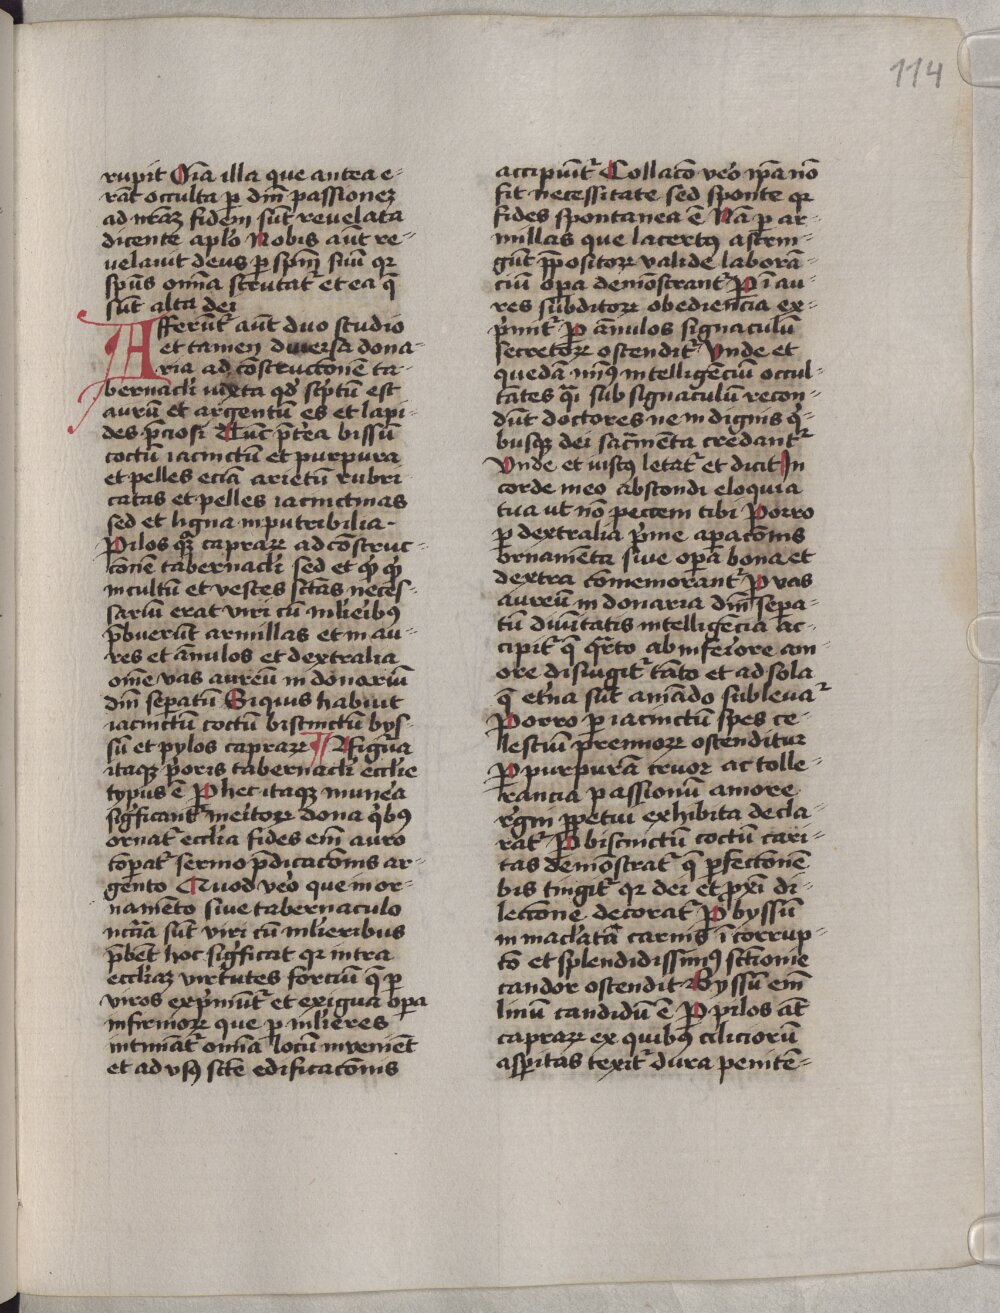 114
rupit Oīa illa que antea e-
rāt occulta p dn̄m passionez
ad nr̄az fidem sūt reuelata
dicente aplo Nobis aūt re-
uelauit deus p spm̄ suū qꝛ
spūs om̄ia scrutat̄ et ea q̄
sūt alta dei
Afferūt aūt duo studio
et tamen diuersa dona-
ria ad cōstructionē ta-
bernacli iuxta qd' scptū est
aurū et argentū es et lapi-
des p̄ciosi Tūc p̄t'ea bissum
coctū iacinctū et purpura
et pelles eciā arietū rubri-
catas et pelles iacinctinas
sed et ligna inputribilia.
Pilos qȝ capraꝝ ad cōstruc-
cōnē tabernacli sed et qꝫ qꝫ
in cultū et vestes sctās neces-
sariū erat viri cū mlieibꝰ
p̄buerūt armillas et in au-
res et ānulos et dextralia
om̄e vas aureū in donariū
dn̄i sepatū Siquis habuit
iacinctū coctū bistinctū bys-
sū et pylos capraꝝ ¶ Figura
itaqꝫ p'oris tabernacli eccl'ie
typus ē P hec itaqꝫ mun'a
sig'ficant̄ m'itoꝝ dona q'bꝰ
ornat̄ eccl'ia fides em̄ auro
cōpat̄ sermo p̄dicacōnis ar-
gento Quod v'o que in or-
namēto siue tabernaculo
nccr̄ia sūt viri cū mlieribus
p̄bēt hoc sig'ficat qꝛ intra
eccl'iaz virtutes forciū q̄ p
viros exp'miūt̄ et exigua opa
infirmioꝝ que p mlieres
intimāt̄ om̄ia locū inueniēt
et ad vsꝫ scte edificacōnis
accipiūt̄ Collacō v'o ip̄a nō
fit necessitate sed sponte qꝛ
fides spontanea ē Nā p ar-
millas que lacertꝰ astrin-
gūt p̄positoꝝ valide laborā-
ciū opa demōstrant̄ P ī au-
res subditoꝝ obediencia ex-
p'mit̄ P ānulos signaculū
secretoꝝ ostendit̄ Vnde et
quedā mīꝰ intelligēciū occul-
tātes q̄i sub signaculū recon-
dūt doctores ne indignis q'-
busqꝫ dei sac̄mēta credant̄
Vnde et iustꝰ letat̄ et dicit In
corde meo abscondi eloquia
tua vt nō peccem tibi Porro
p dextralia p'me apacōnis
ornamēta siue opa bona et
dextra comemorant̄ P vas
aureū in donaria dn̄i sepa-
tū diuītatis intelligēcia ac-
cipit̄ q̄ q̄rto ab inferiore am-
ore disiugit̄ tāto et ad sola
q̄ et'na sūt amādo subleuat̄
Porro p iacinctū spes ce-
lestiū premioꝝ ostenditur
P purpurā cruor ac tolle-
rancia passionū amore
r'gni ppetui exhibita decla-
rat̄ P biscinctū coctū cari-
tas demōstrat̄ q̄ pfectōnē
bis tingit̄ qꝛ dei et p̄xi di-
lectione decorat̄ P byssū
inmaclata carnis ī corrup-
tō et splendidissimꝰ sctīonie
candor ostendit̄ Byssū em̄
linū candidū ē P pilos aūt
capraꝝ ex quibꝰ ciliciorū
aspitas texit̄ dura penitē-